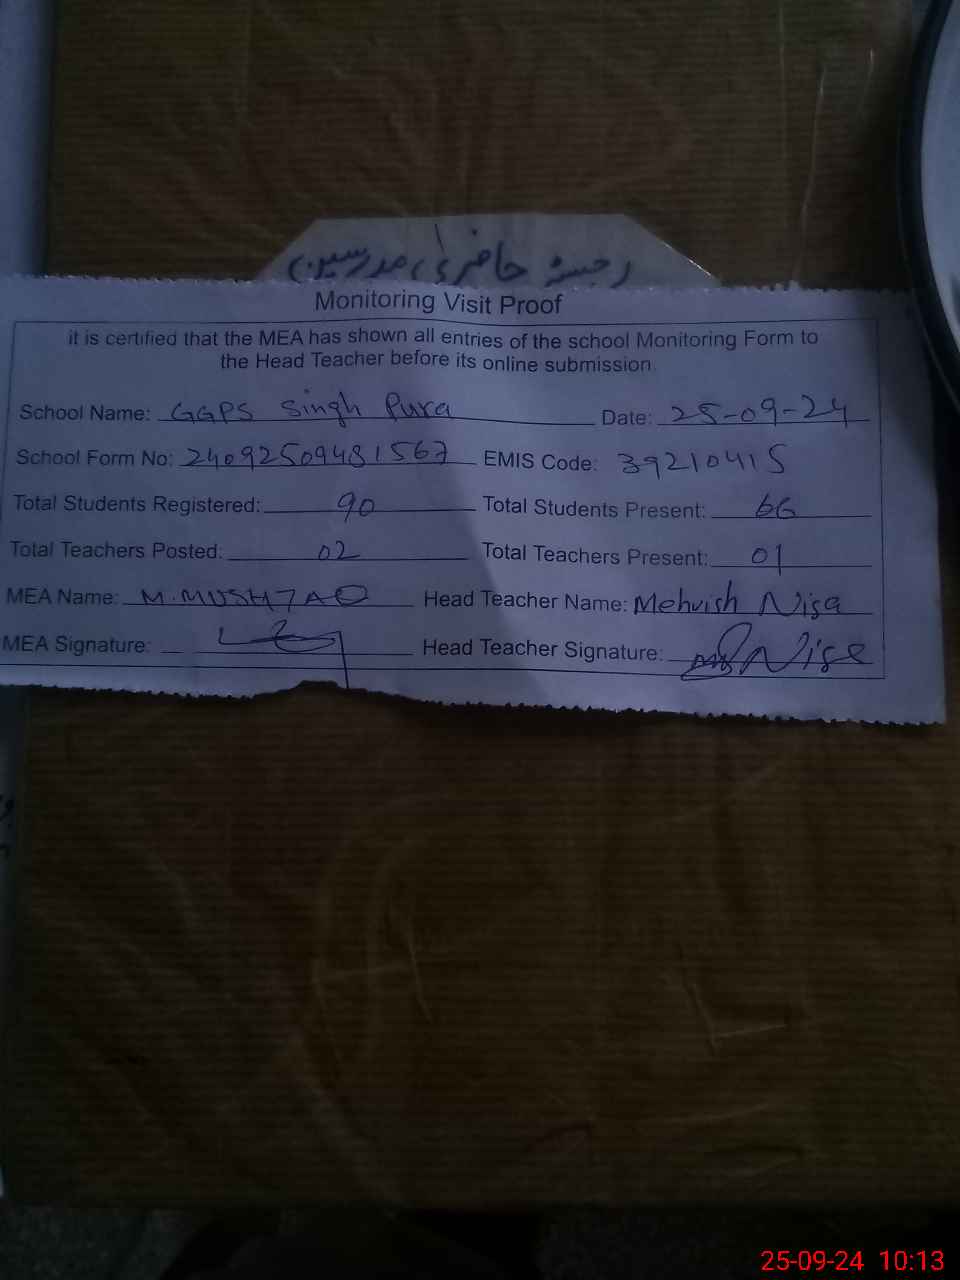 رجسٹر حاضری مدرسین
Monitoring Visit Proof
it is certified that the MEA has shown all entries of the school Monitoring Form to
the Head Teacher before its online submission.
School Name: GGPS Singh Pura Date: 25-09-24
School Form No: 24092509481567 EMIS Code: 39210415
Total Students Registered: 90 Total Students Present: 66
Total Teachers Posted: 02 Total Teachers Present: 01
MEA Name: M.MUSHTAQ Head Teacher Name: Mehvish Nisa
MEA Signature: Head Teacher Signature: Nisa
25-09-24 10:13